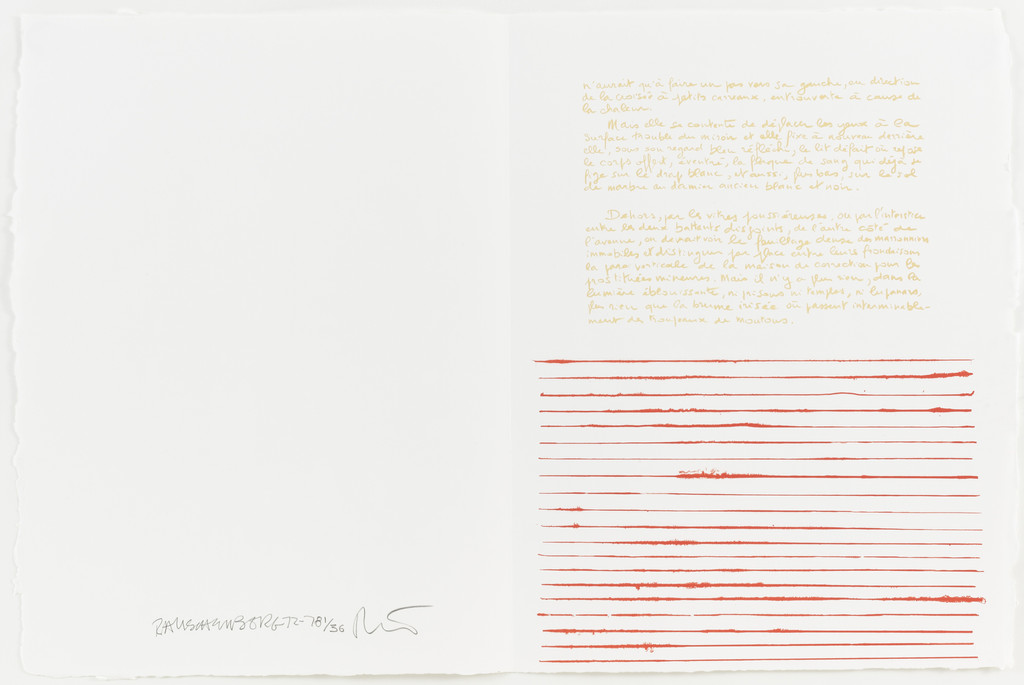 n'aurait qu'à faire un pas vers sa gauche, en direction
de la croisée à petits carreaux, entrouverte à cause de
la chaleur.
Mais elle se contente de déplacer les yeux à la
surface trouble du miroir et elle fixe à nouveau derrière
elle, sous son regard bleu réfléchi, le lit défait où repose
le corps offert, éventré, la flaque de sang qui déjà se
fige sur le drap blanc, et aussi, plus bas, sur le sol
de marbre au damier ancien blanc et noir.
Dehors, par les vitres poussiéreuses, ou par l'interstice
entre les deux battants disjoints, de l'autre côté de
l'avenue, on devrait voir le feuillage dense des marronniers
immobiles et distinguer par place entre leurs frondaisons
la paroi verticale de la maison de correction pour les
prostituées mineures. Mais il n'y a plus rien, dans la
lumière éblouissante, ni prisons ni temples, ni lupanars,
plus rien que la brume irisée où passent interminable-
ment des troupeaux de moutons.
RAUSCHENBERG 72-78 1/36